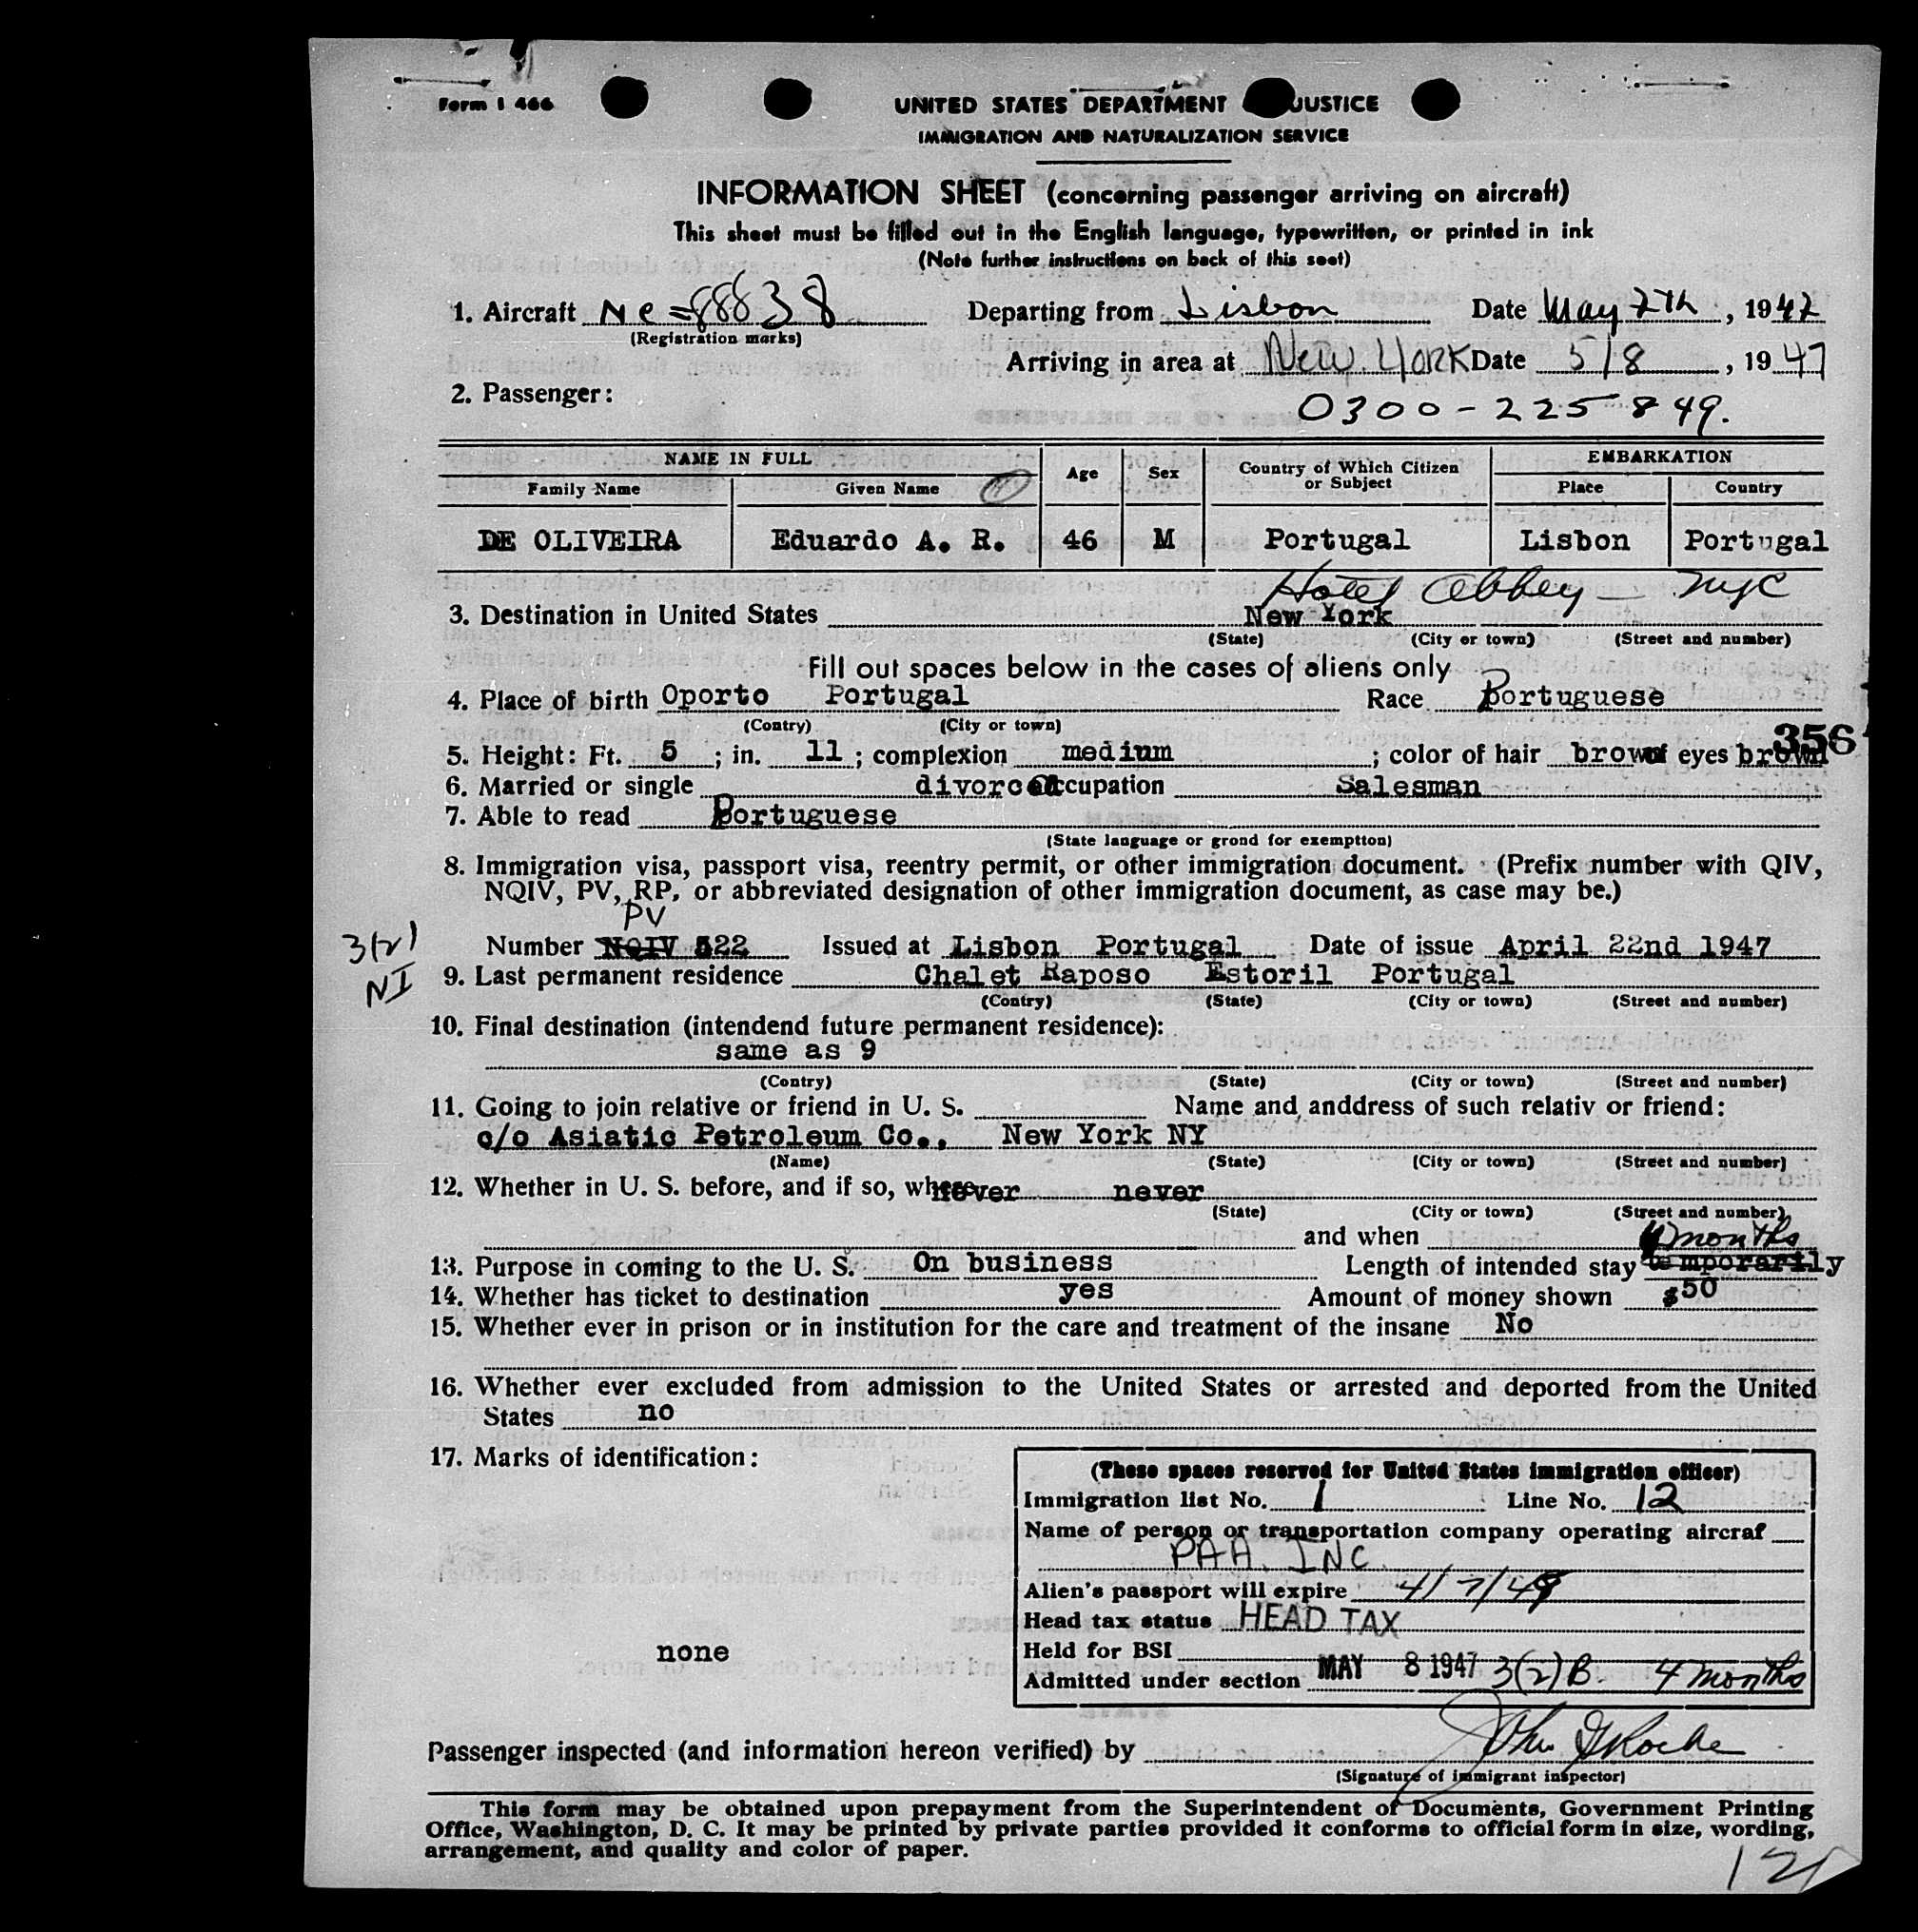 Form I 466
UNITED STATES DEPARTMENT JUSTICE
IMMIGRATION AND NATURALIZATION SERVICE
INFORMATION SHEET (concerning passenger arriving on aircraft)
This sheet must be filled out in the English language, typewritten, or printed in ink
(Note further instructions on back of this seet)
1. Aircraft Nc=88838 Departing from Lisbon Date May 7th, 1947
(Registration marks)
Arriving in area at New York Date 5/8, 1947
2. Passenger:
0300-225849.
NAME IN FULL Age Sex Country of Which Citizen or Subject EMBARKATION
Family Name Given Name Place Country
DE OLIVEIRA Eduardo A. R. 46 M Portugal Lisbon Portugal
Hotel Abbey - NYC
3. Destination in United States New York
(State) (City or town) (Street and number)
Fill out spaces below in the cases of aliens only
4. Place of birth Oporto Portugal Race Portuguese
(Contry) (City or town)
356
5. Height: Ft. 5 ; in. 11 ; complexion medium ; color of hair brown of eyes brown
6. Married or single divorced Occupation Salesman
7. Able to read Portuguese
(State language or grond for exemption)
8. Immigration visa, passport visa, reentry permit, or other immigration document. (Prefix number with QIV,
NQIV, PV, RP, or abbreviated designation of other immigration document, as case may be.)
PV
3(2)
Number NQIV 522 Issued at Lisbon Portugal Date of issue April 22nd 1947
NI
9. Last permanent residence Chalet Raposo Estoril Portugal
(Contry) (State) (City or town) (Street and number)
10. Final destination (intendend future permanent residence):
same as 9
(Contry) (State) (City or town) (Street and number)
11. Going to join relative or friend in U. S. Name and anddress of such relativ or friend:
c/o Asiatic Petroleum Co., New York NY
(Name) (State) (City or town) (Street and number)
12. Whether in U. S. before, and if so, where never never
(State) (City or town) (Street and number)
and when
4 months
13. Purpose in coming to the U. S. On business Length of intended stay temporarily
14. Whether has ticket to destination yes Amount of money shown $50
15. Whether ever in prison or in institution for the care and treatment of the insane No
16. Whether ever excluded from admission to the United States or arrested and deported from the United
States no
17. Marks of identification:
none
(These spaces reserved for United States immigration officer)
Immigration list No. 1 Line No. 12
Name of person or transportation company operating aircraf
PAA. INC.
Alien's passport will expire 4/7/49
Head tax status HEAD TAX
Held for BSI
Admitted under section MAY 8 1947 3(2)B. 4 months
Passenger inspected (and information hereon verified) by John Roche
(Signature of immigrant inspector)
This form may be obtained upon prepayment from the Superintendent of Documents, Government Printing
Office, Washington, D. C. It may be printed by private parties provided it conforms to official form in size, wording,
arrangement, and quality and color of paper.